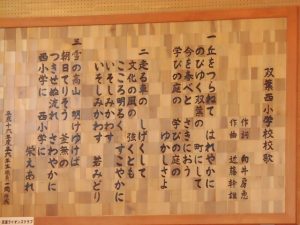 双葉西小学校校歌
作詞 和田房恵
作曲 近藤幹雄
一 丘をつらねて はれやかに
のびゆく双葉の 町にして
今を春べと さきにおう
学びの庭の 学びの庭の
ゆかしさよ
二 走る車の しげくして
文化の風の 強くとも
こころ明るく すこやかに
いそしみかわす
いそしみかわす 若みどり
三 雪の高山 明けゆけば
朝日てりそう 釜無の
つきせぬ流れ さわやかに
西小学に 西小学に
栄えあれ